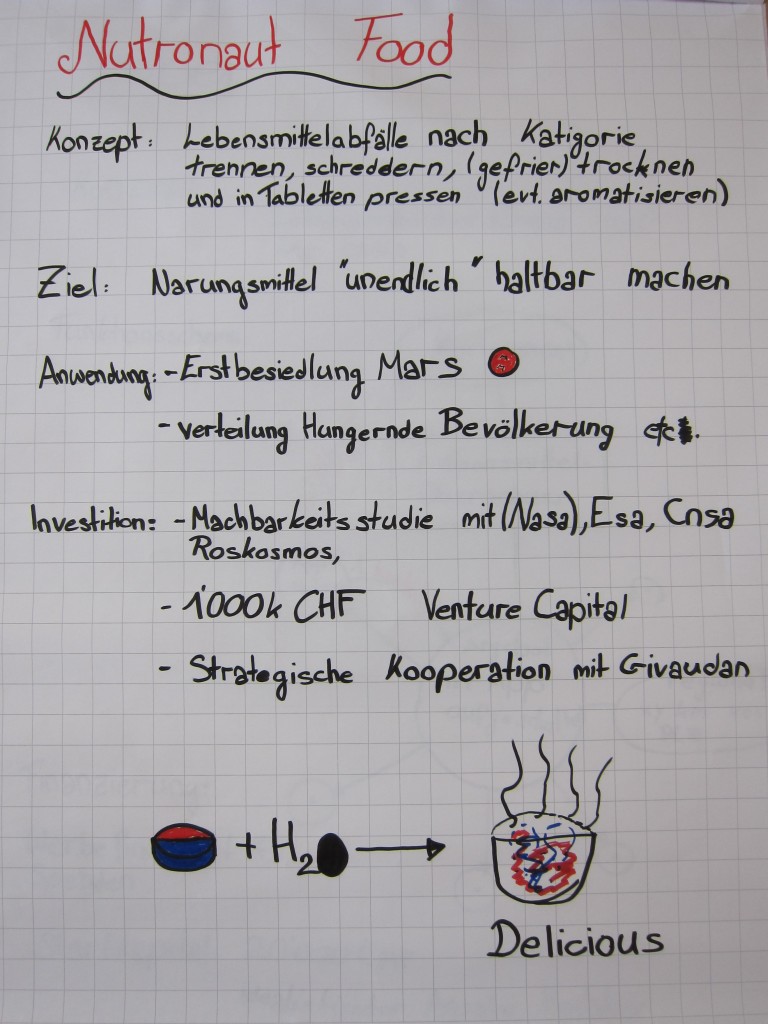 Nutronaut Food
Konzept: Lebensmittelabfälle nach Katigorie
trennen, schreddern, (gefrier) trocknen
und in Tabletten pressen (evt. aromatisieren)
Ziel: Narungsmittel "unendlich" haltbar machen
Anwendung: - Erstbesiedlung Mars
- verteilung Hungernde Bevölkerung etc.
Investition: - Machbarkeitsstudie mit (Nasa), Esa, Cnsa
Roskosmos,
- 1'000k CHF Venture Capital
- Strategische Kooperation mit Givaudan
+ H2O
Delicious